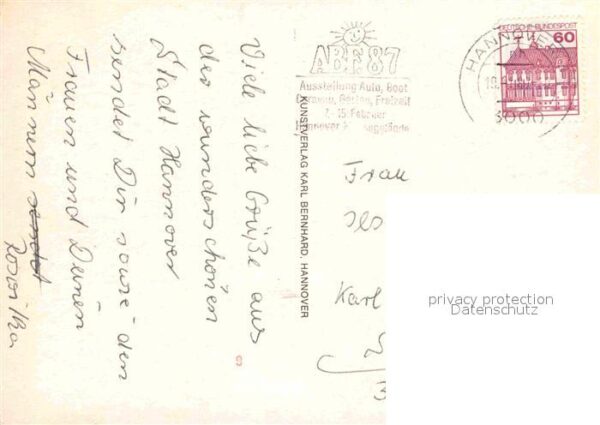 Viele liebe Grüße aus
der wunderschönen
Stadt Hannover
sendet Dir sowie den
Frauen und Deinen
Männern sendet
ABF 87
Ausstellung Auto, Boot
Garten, Freizeit
7.-15. Februar
Hannover
HANNOVER
3000
DEUTSCHE BUNDESPOST
60
KUNSTVERLAG KARL BERNHARD, HANNOVER
Frau
Karl
privacy protection
Datenschutz